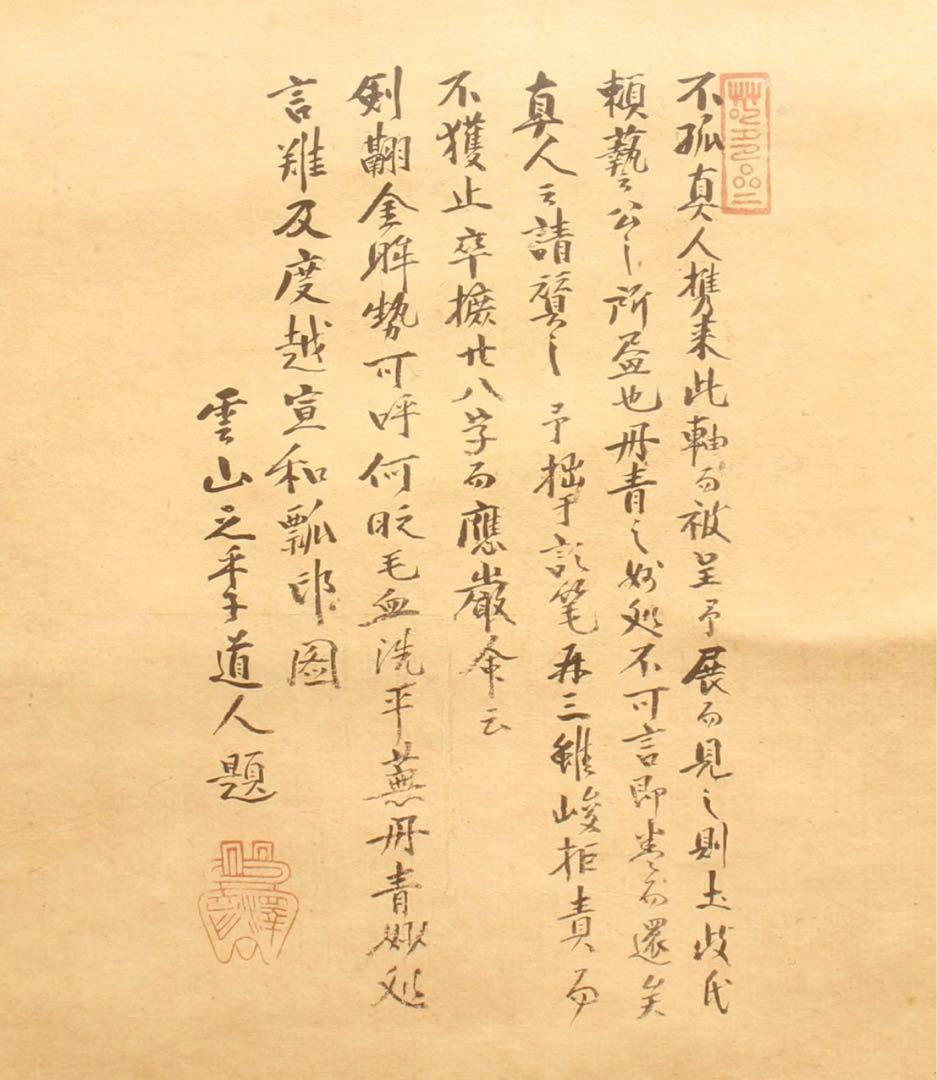 不孤真人携来此軸而被呈予展而見之則土岐氏
頼藝公之所画也丹青之妙処不可言即巻而還矣
真人云請賛之予拙于詩筆再三雖峻拒責而
不獲止卒攄廿八字而應嚴命云
剣翮金眸勢可呼何時毛血洗平蕪丹青妙処
言難及度越宣和瓢印図
雲山之季子道人題